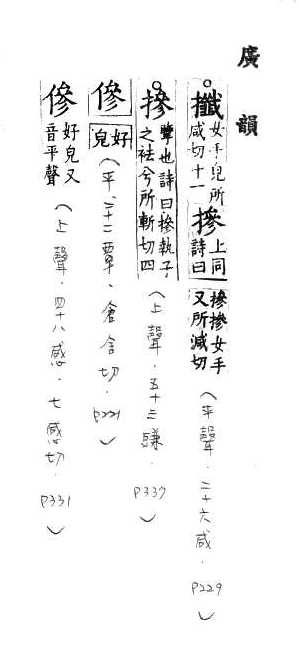 廣韻
攕女手皃所咸切十一摻上同詩曰摻摻女手又所減切（平聲．二十六咸．P229）
摻擥也詩曰摻執子之袪今所斬切四（上聲．五十三豏．P337）
傪好皃（平．二十二覃．倉含切．P221）
傪好皃又音平聲（上聲．四十八感．七感切．P331）